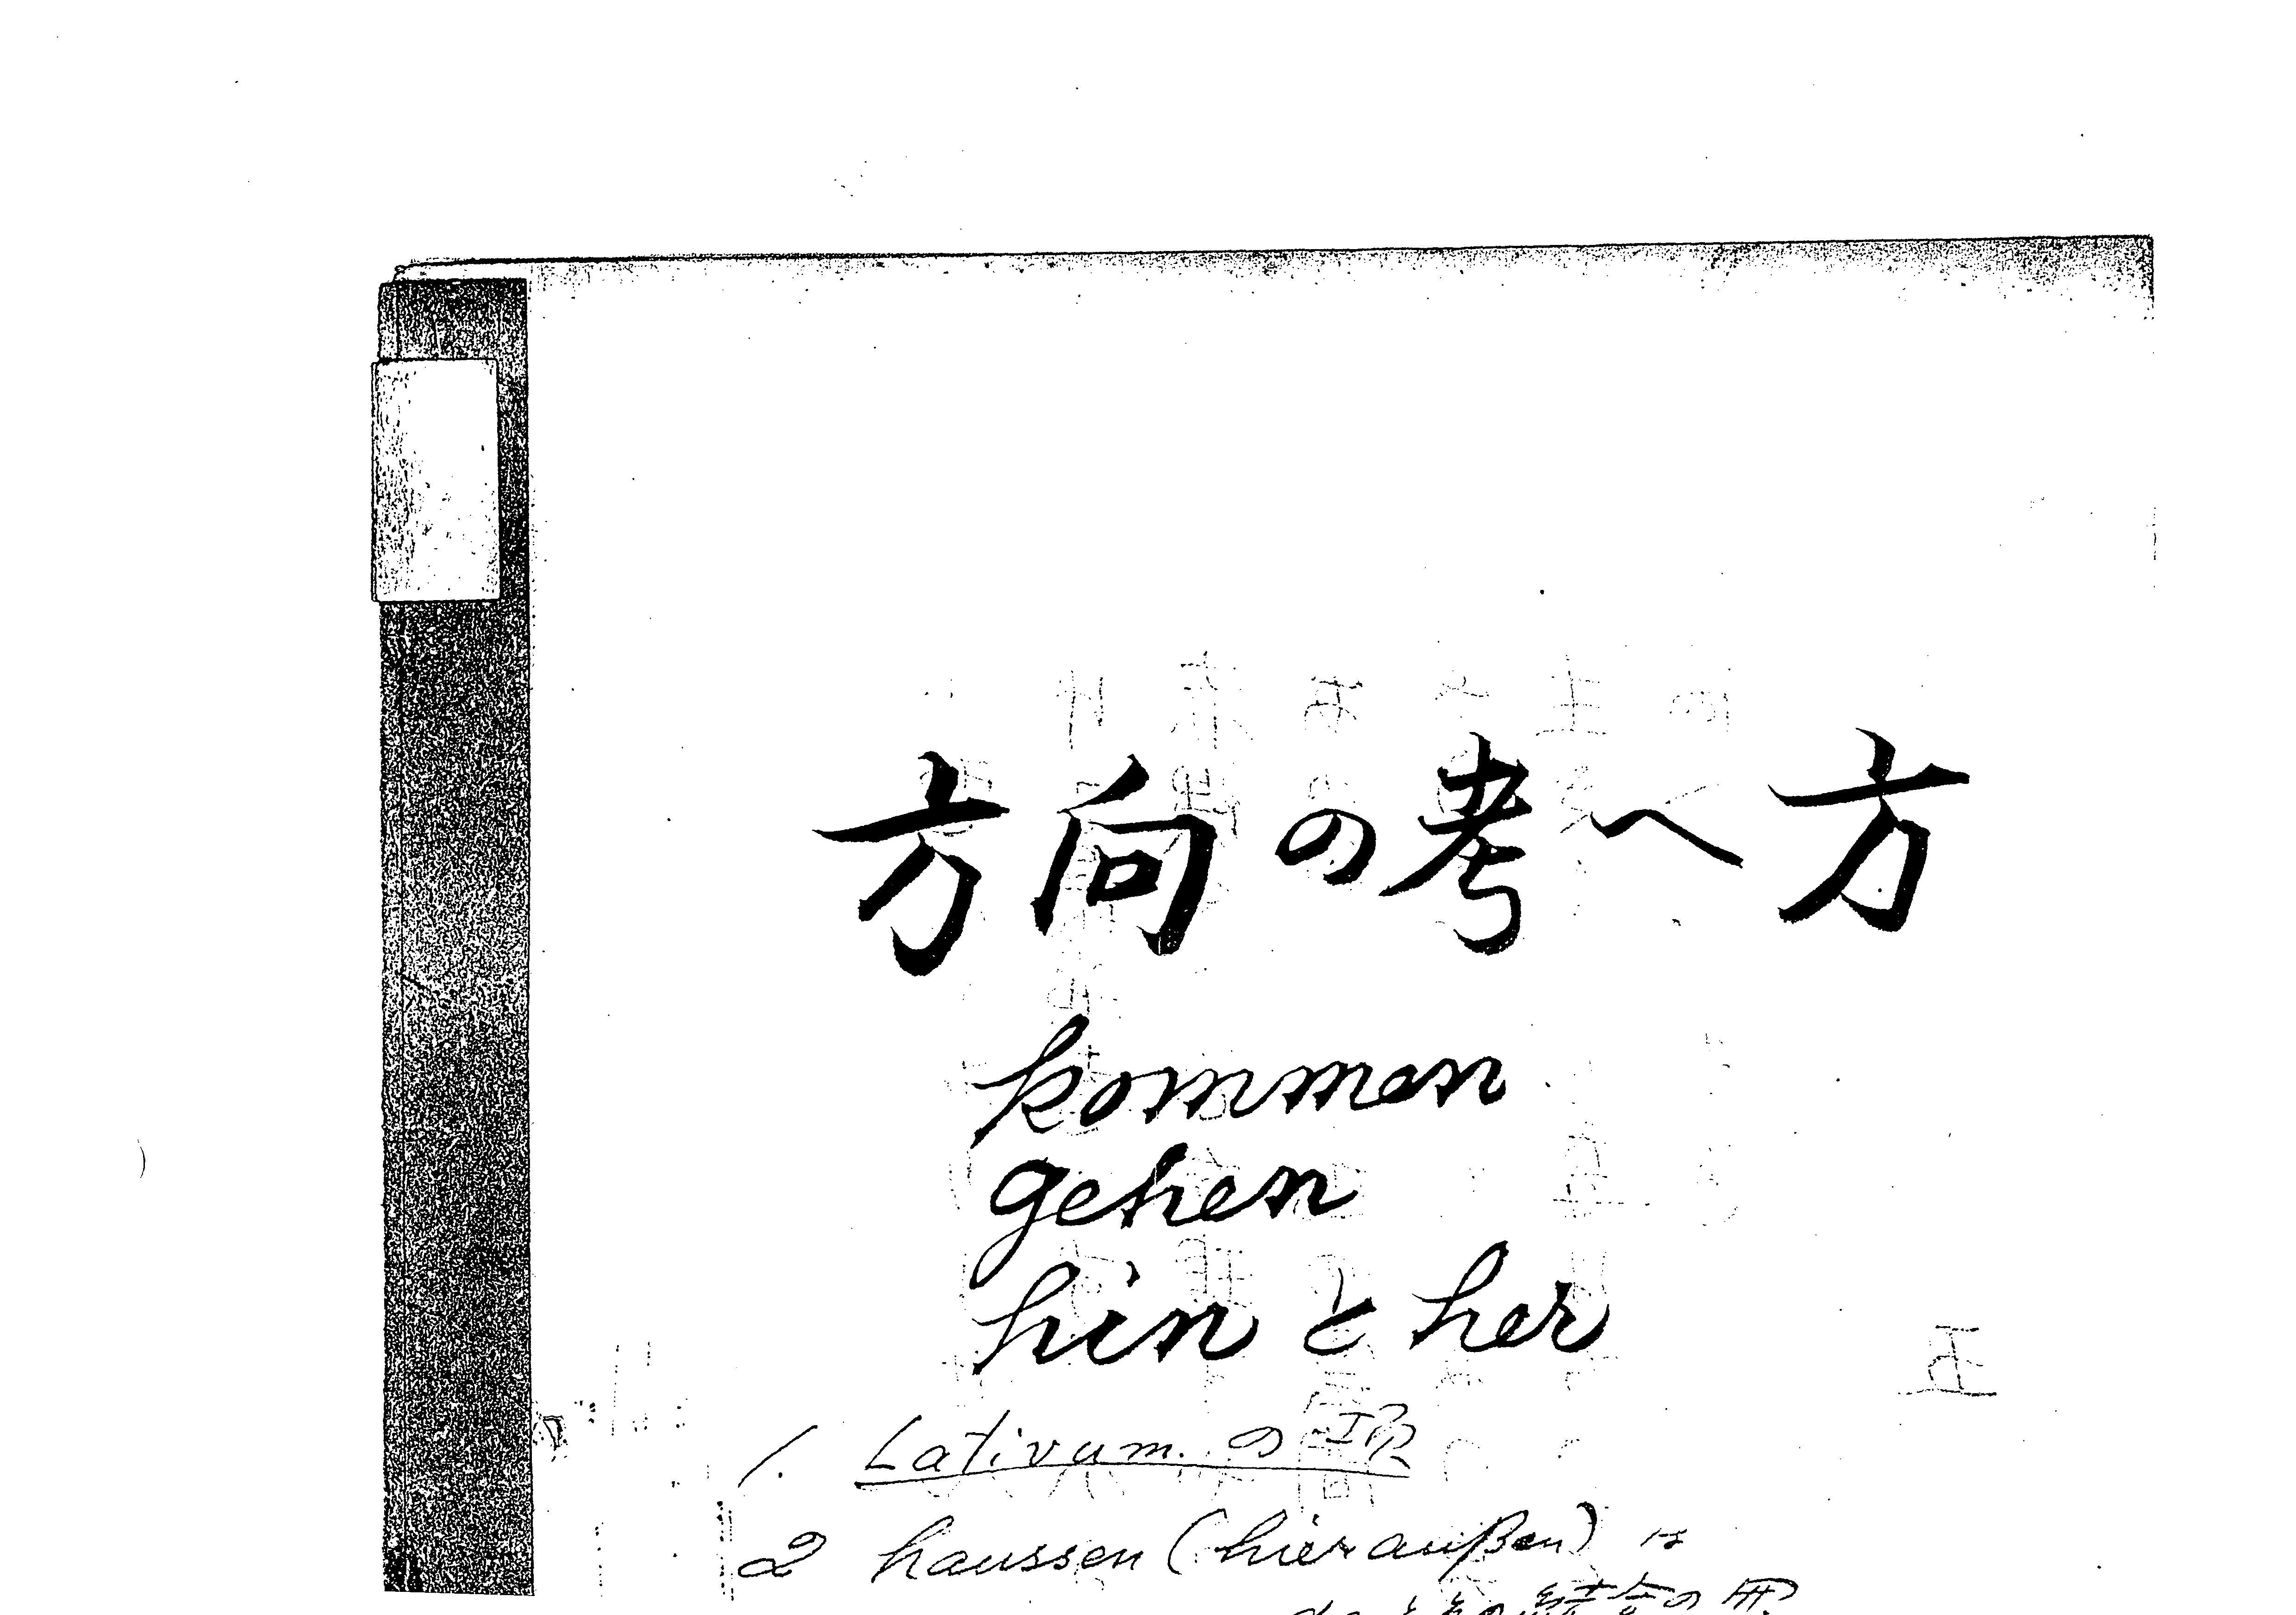 方向の考へ方
kommen
gehen
hin と her
1. Lativum. の
2 haussen (hieraußen) は